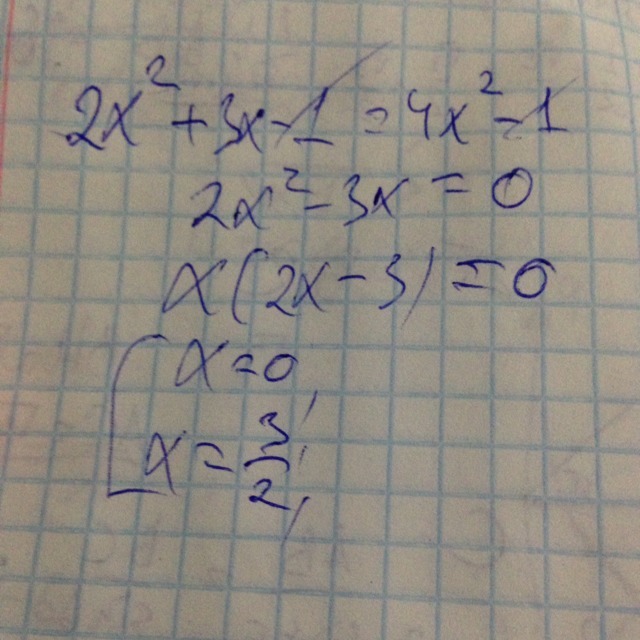 2x² + 3x - 1 = 4x² - 1
2x² - 3x = 0
x(2x - 3) = 0
[ x = 0
x = 3/2